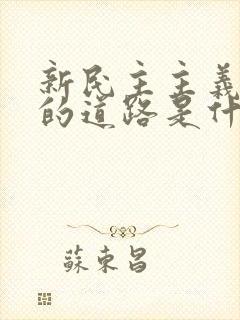 新民主主義
的道路是什
蘇東昌